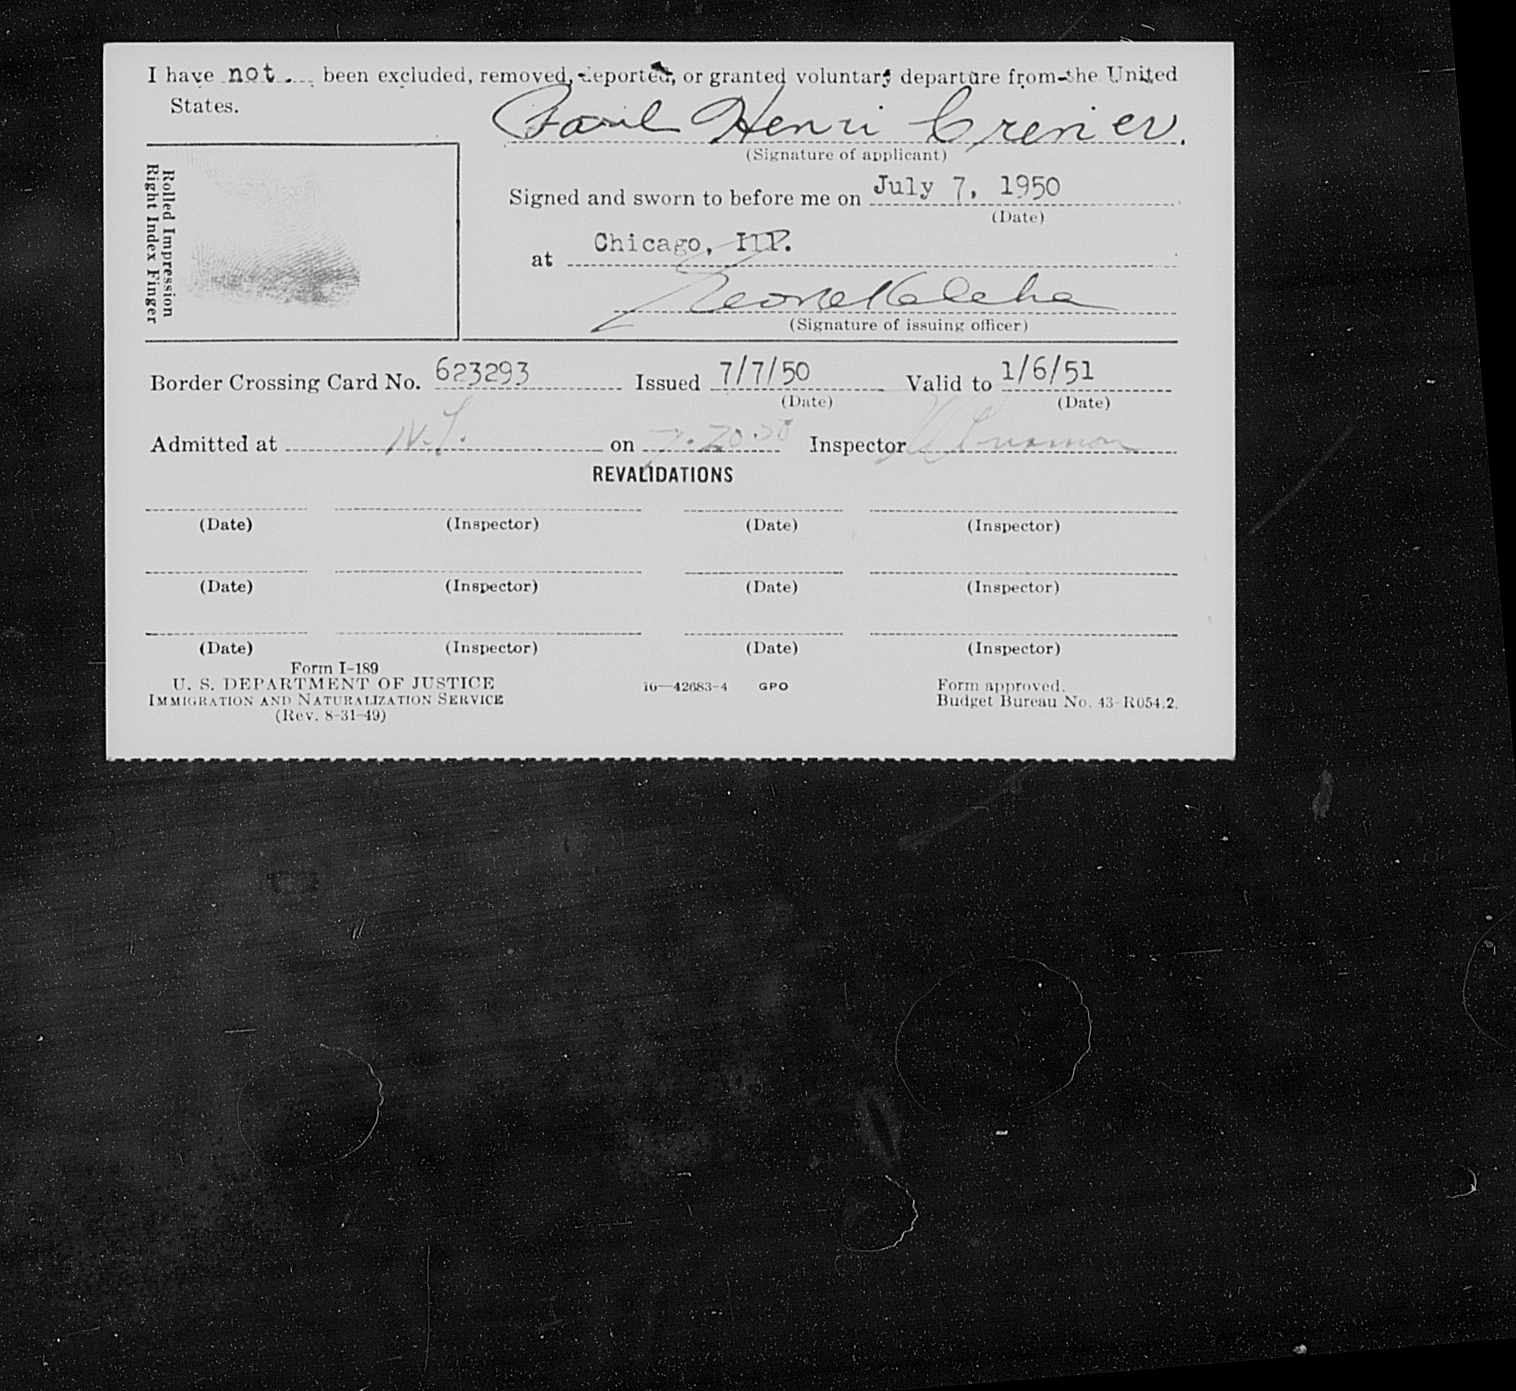 I have not. been excluded, removed, deported, or granted voluntary departure from the United
States.
Paul Henri Grenier.
(Signature of applicant)
Rolled Impression
Right Index Finger
Signed and sworn to before me on July 7, 1950
(Date)
at Chicago, Ill.
(Signature of issuing officer)
Border Crossing Card No. 623293 Issued 7/7/50 Valid to 1/6/51
(Date) (Date)
Admitted at on 7-20-50 Inspector
REVALIDATIONS
(Date) (Inspector) (Date) (Inspector)
(Date) (Inspector) (Date) (Inspector)
(Date) (Inspector) (Date) (Inspector)
Form I-189
U. S. DEPARTMENT OF JUSTICE 16—42683-4 GPO Form approved.
IMMIGRATION AND NATURALIZATION SERVICE Budget Bureau No. 43-R054.2.
(Rev. 8-31-49)